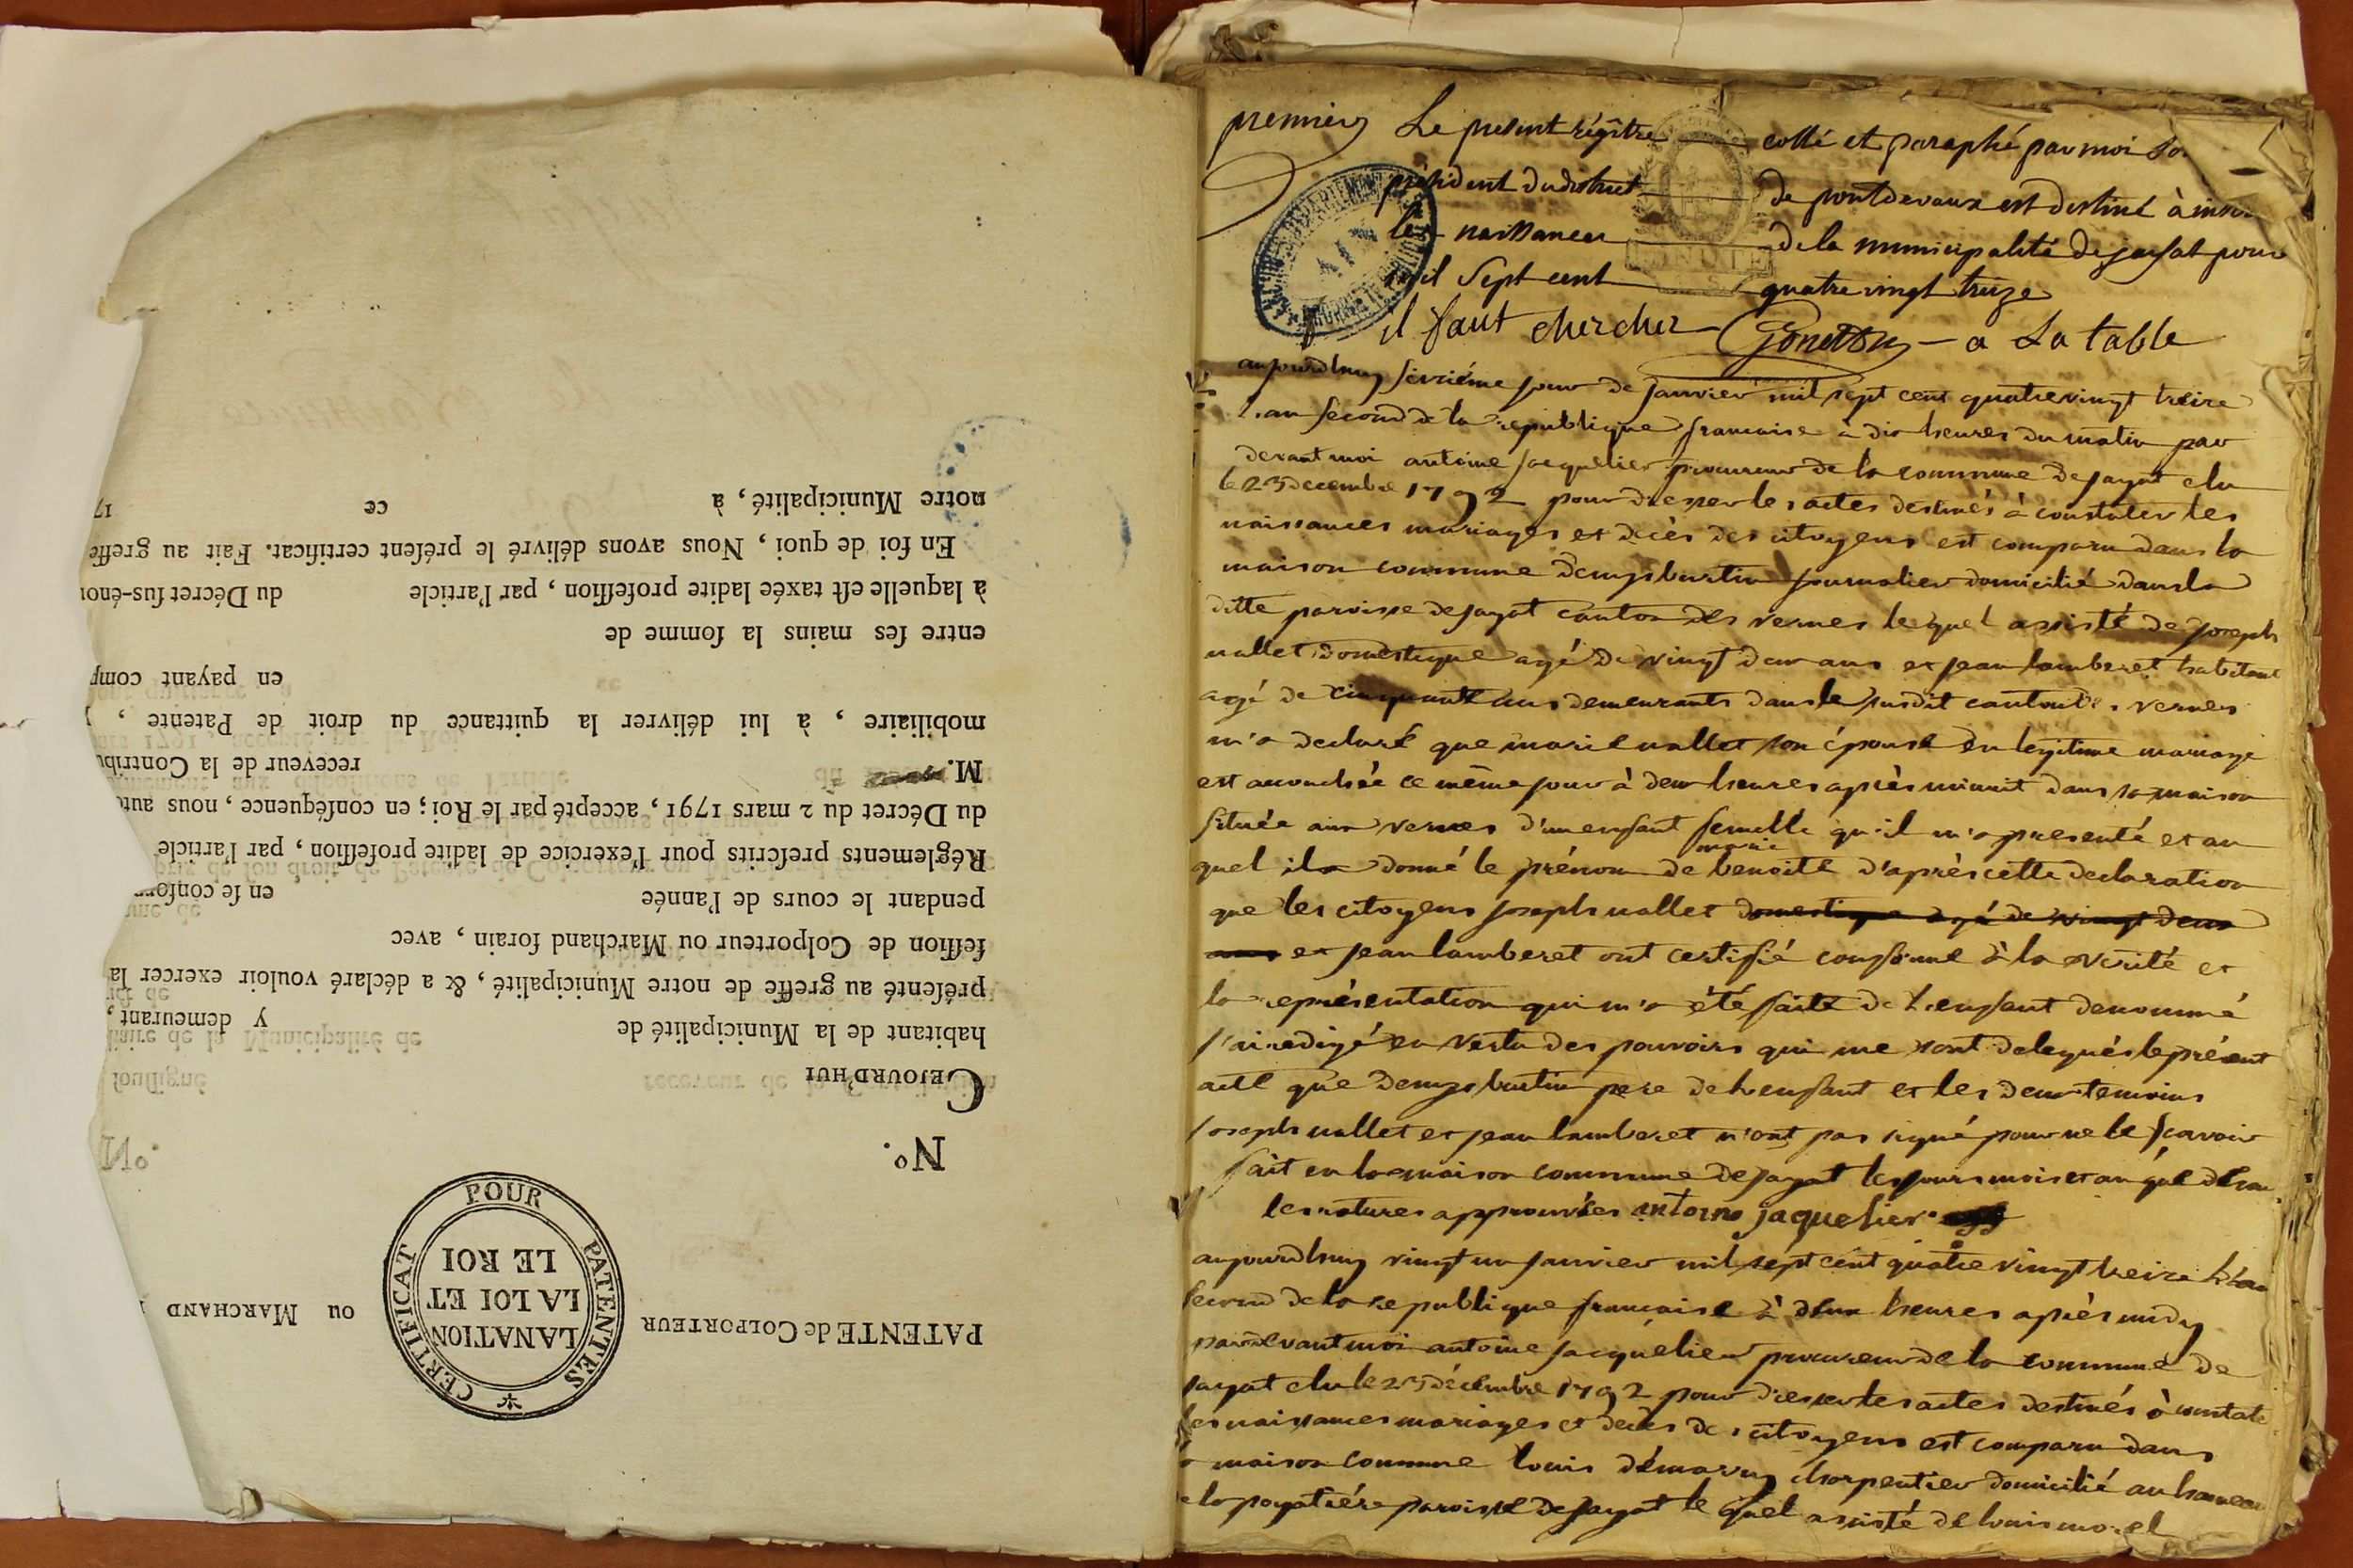 PATENTE de COLPORTEUR
OU MARCHAND
CERTIFICAT POUR PATENTES
LA NATION
LA LOI ET
LE ROI
N.º
CEJOURD'HUI
habitant de la Municipalité de y demeurant,
préſenté au greffe de notre Municipalité, & a déclaré vouloir exercer la
feſſion de Colporteur ou Marchand forain, avec
pendant le cours de l'année en ſe conform
Réglements preſcrits pour l'exercice de ladite profeſſion, par l'article
du Décret du 2 mars 1791, accepté par le Roi; en conſéquence, nous auto
M. receveur de la Contribu
mobiliaire, à lui délivrer la quittance du droit de Patente,
en payant comp
entre ſes mains la ſomme de
à laquelle eſt taxée ladite profeſſion, par l'article du Décret ſus-énon
En foi de quoi, Nous avons délivré le préſent certificat. Fait au greffe
notre Municipalité, à ce 17
premier Le present régître cotté et paraphé par moi
président du district de pontdevaux est destiné à
les naissances de la municipalité de jayat pour
mil sept cent quatre vingt treize
il faut chercher a La table
aujourdhuy seizième jour de janvier mil sept cent quatre vingt treize
l'an second de la republique francaise à dix heures du matin par
devant moi antoine jacquelier procureur de la commune de jayat elu
le 23 decembre 1792 pour dresser les actes destinés à constater les
naissances mariages et décès des citoyens est comparu dans la
maison commune denys burtin journalier domicilié dans la
ditte paroisse de jayat canton des vernes lequel assisté de joseph
vallet domestique agé de vingt deux ans et jean lamberet habitant
agé de cinquante ans demeurants dans le susdit canton des vernes
m'a declaré que marie vallet son épouse en legitime mariage
est accouchée ce même jour à deux heures après minuit dans sa maison
située aux vernes d'un enfant femelle qu'il m'a presenté et au
marie
quel il a donné le prénom de benoite d'après cette declaration
que les citoyens joseph vallet domestique agé de vingt deux
ans et jean lamberet ont certifié conforme à la vérité et
la représentation qui m'a été faite de l'enfant denommé
j'ai redigé en vertu des pouvoirs qui me sont delegués le présent
acte que denys burtin pere de l'enfant et les deux temoins
joseph vallet et jean lamberet n'ont pas signé pour ne le scavoir
fait en la maison commune de jayat les jours mois et an que dessus
les ratures approuvées antoine jaquelier
aujourdhuy vingt un janvier mil sept cent quatre vingt treize l'an
second de la republique francaise à deux heures après midy
pardevant moi antoine jacquelier procureur de la commune de
jayat elu le 23 décembre 1792 pour dresser les actes destinés à constater
les naissances mariages et décès des citoyens est comparu dans
la maison commune louis charpentier domicilié au hameau
de la paroisse de jayat le quel assisté de louis morel